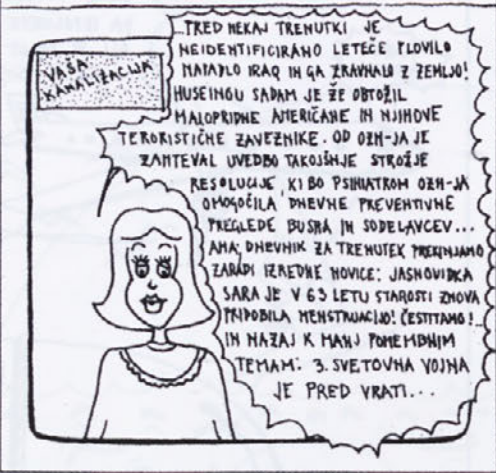 VAŠA
KANALIZACIJA
...PRED NEKAJ TRENUTKI JE
NEIDENTIFICIRANO LETEČE PLOVILO
NAPADLO IRAQ IN GA ZRAVNALO Z ZEMLJO!
HUSEINGU SADAM JE ŽE OBTOŽIL
MALOPRIDNE AMERIČANE IN NJIHOVE
TERORISTIČNE ZAVEZNIKE. OD OZN-JA JE
ZAHTEVAL UVEDBO TAKOJŠNJE STROŽJE
RESOLUCIJE, KI BO PSIHIATROM OZN-JA
OMOGOČILA DNEVNE PREVENTIVNE
PREGLEDE BUSHA IN SODELAVCEV...
AHA, DNEVNIK ZA TRENUTEK PREKINJAMO
ZARADI IZREDNE NOVICE: JASNOVIDKA
SARA JE V 63 LETU STAROSTI ZNOVA
PRIDOBILA MENSTRUACIJO! ČESTITAMO!..
IN NAZAJ K MANJ POMEMBNIM
TEMAM: 3. SVETOVNA VOJNA
JE PRED VRATI...